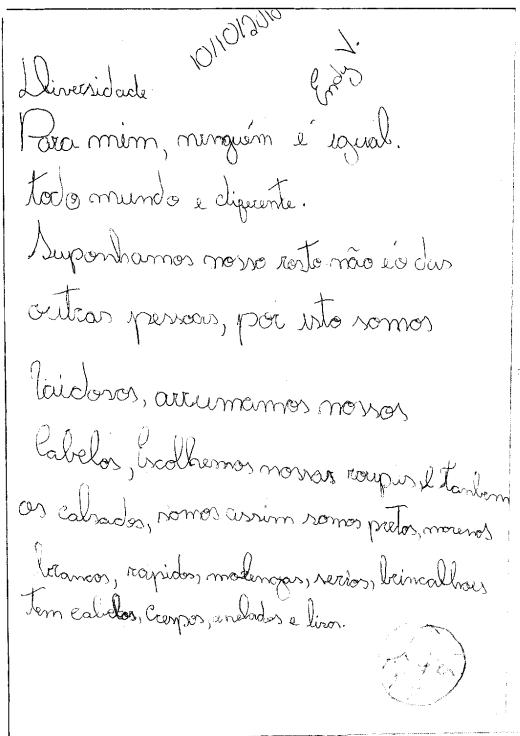 10/10/2010
Endy V.
Diversidade
Para mim, ninguém é igual.
todo mundo e diferente.
Suponhamos nosso rosto não é o das
outras pessoas, por isto somos
Vaidosos, arrumamos nossos
Cabelos, Escolhemos nossas roupas E tanbem
os calsados, somos assim somos pretos, morenos
brancos, rapidos, molengas, serios, brincalhoes
tem cabelos, Crespos, enelados e lisos.